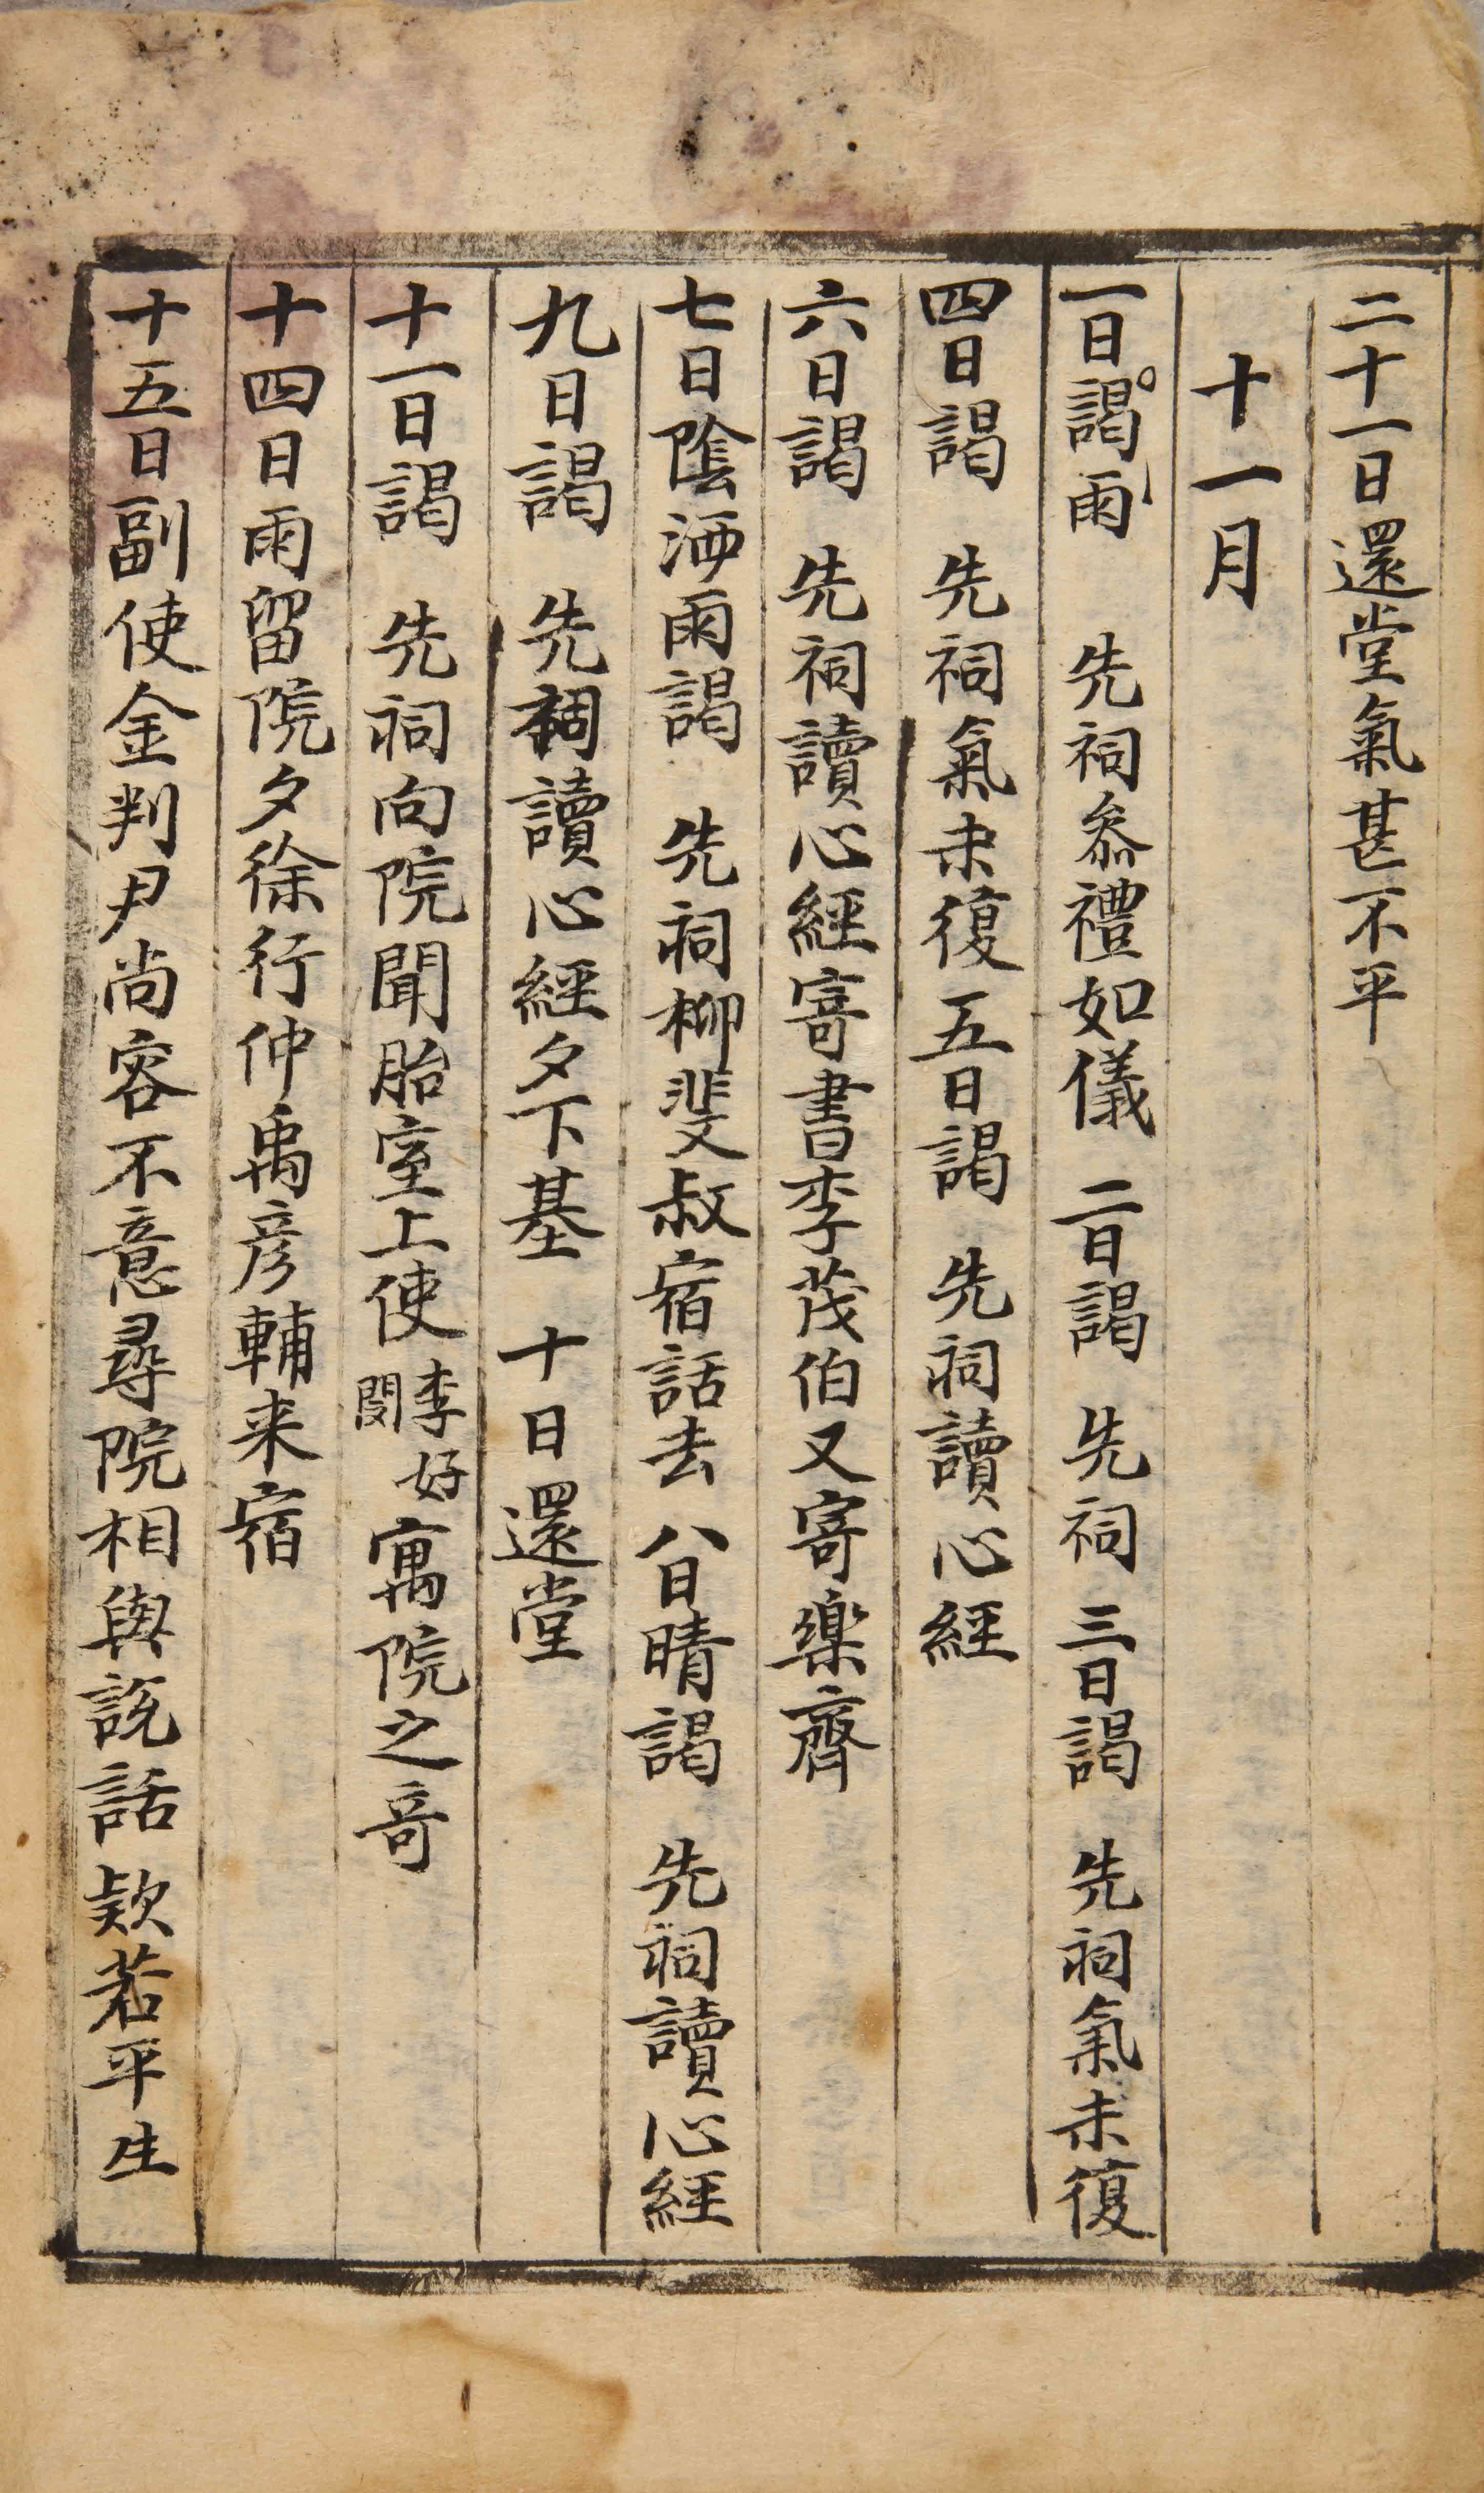 二十一日還堂氣甚不平
十一月
一日謁雨　先祠叅禮如儀　二日謁　先祠　三日謁　先祠氣未復
四日謁　先祠氣未復　五日謁　先祠讀心經
六日謁　先祠讀心經寄書李茂伯又寄樂齋
七日陰洒雨謁　先祠柳斐叔宿話去　八日晴謁　先祠讀心經
九日謁　先祠讀心經夕下基　十日還堂
十一日謁　先祠向院聞胎室上使李好閔寓院之奇
十四日雨留院夕徐行仲禹彦輔来宿
十五日副使金判尹尚容不意尋院相與說話欵若平生